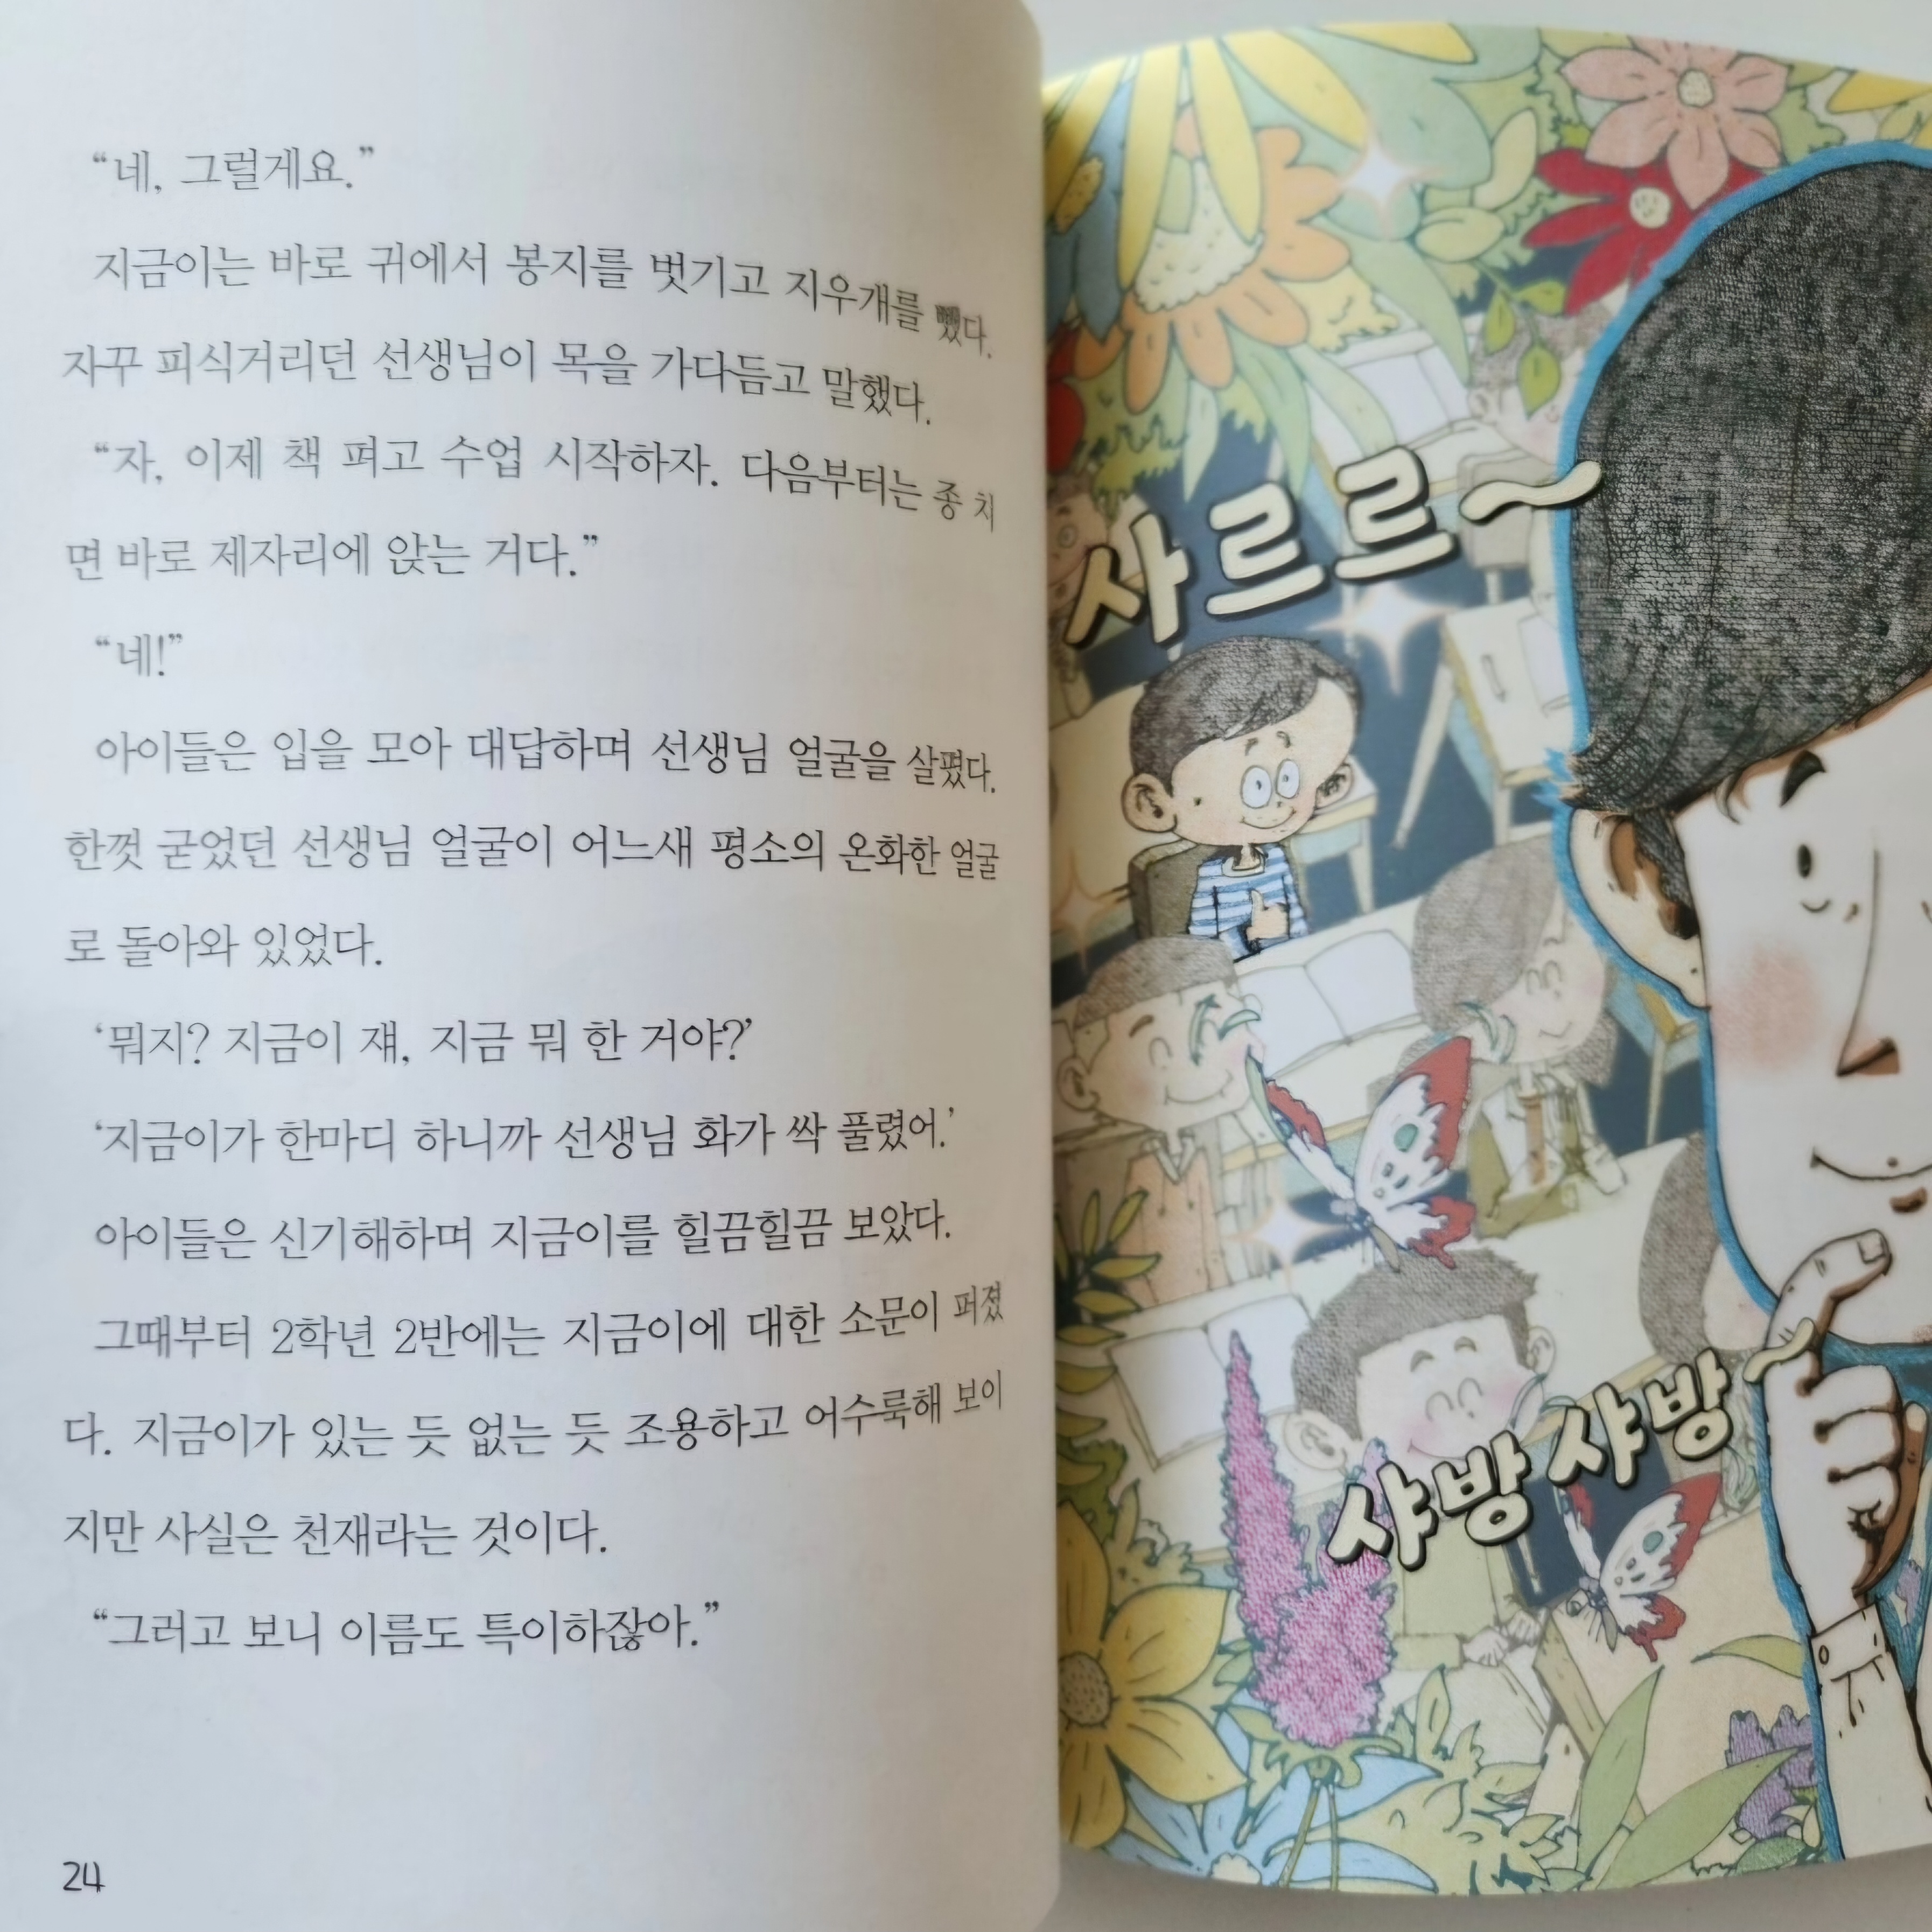 “네, 그럴게요.”
지금이는 바로 귀에서 봉지를 벗기고 지우개를 뺐다.
자꾸 피식거리던 선생님이 목을 가다듬고 말했다.
“자, 이제 책 펴고 수업 시작하자. 다음부터는 종 치
면 바로 제자리에 앉는 거다.”
“네!”
아이들은 입을 모아 대답하며 선생님 얼굴을 살폈다.
한껏 굳었던 선생님 얼굴이 어느새 평소의 온화한 얼굴
로 돌아와 있었다.
‘뭐지? 지금이 쟤, 지금 뭐 한 거야?’
‘지금이가 한마디 하니까 선생님 화가 싹 풀렸어.’
아이들은 신기해하며 지금이를 힐끔힐끔 보았다.
그때부터 2학년 2반에는 지금이에 대한 소문이 퍼졌
다. 지금이가 있는 듯 없는 듯 조용하고 어수룩해 보이
지만 사실은 천재라는 것이다.
“그러고 보니 이름도 특이하잖아.”
24
사르르~
샤방샤방~